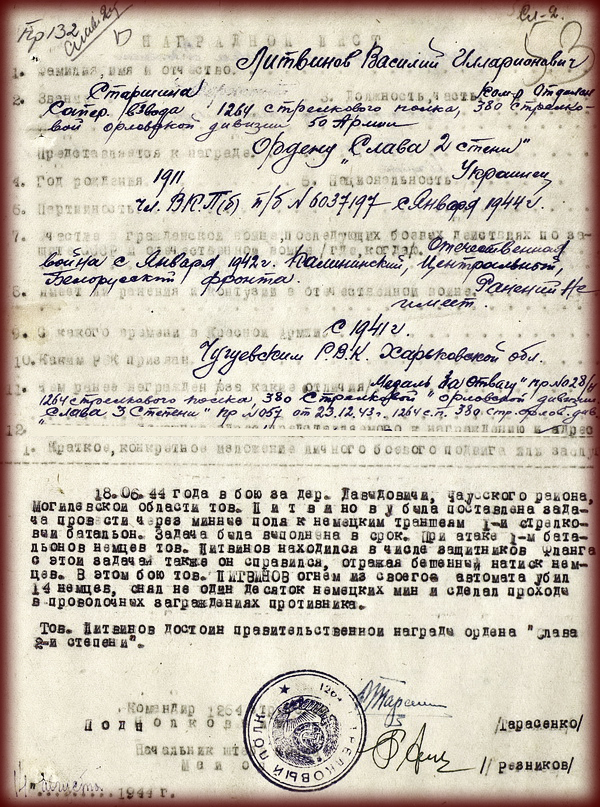 Пр 132
Слав. 2 ст
Сл-2.
53
НАГРАДНОЙ ЛИСТ
1. Фамилия, имя и отчество. Литвинов Василий Илларионович
2. Звание Старшина 3. Должность, часть Ком-р отделен
Сапер. взвода 1264 стрелкового полка, 380 стрелко-
вой орловской дивизии 50 Армии
Представляется к награде Ордену "Слава 2 степени"
4. Год рождения 1911 5. Национальность Украинец
6. Партийность чл. ВКП(б) п/б № 6037197 с Января 1944 г.
7. Участие в Гражданской войне, последующих боевых действиях по за-
щите СССР и отечественной войне /где, когда/ Отечественная
война с Января 1942 г. Калининский, Центральный,
Белорусский фронта.
8. Имеет ли ранения и контузии в отечественной войне Ранений не
имеет.
9. С какого времени в Красной Армии С 1941 г.
10. Каким РВК призван. Чугуевским Р.В.К. Харьковской обл.
11. Чем ранее награжден /за какие отличия/ Медаль "За Отвагу" Пр № 028/н
1264 стрелкового полка 380 Стрелковой орловской дивизии
"Слава 3 Степени" Пр № 057 от 23.12.43 г. 1264 с.п. 380 Стр. орлов. див.
12. к награждению и адрес
1. Краткое, конкретное изложение личного боевого подвига или заслуг
18.06.44 года в бою за дер. Давыдовичи, Чаусского района,
Могилевской области тов. Литвинову была поставлена зада-
ча провести через минные поля к немецким траншеям 1-й стрелко-
вый батальон. Задача была выполнена в срок. При атаке 1-м бата-
льонов немцев тов. Литвинов находился в числе защитников фланга
с этой задачай также он справился, отражая бешенный натиск нем-
цев. В этом бою тов. ЛИТВИНОВ огнем из своего автомата убил
14 немцев, снял не один десяток немецких мин и сделал проходы
в проволочных заграждениях противника.
Тов. Литвинов достоин правительственной награды ордена "Слава
2-й степени".
Командир 1264 стр
Подполков /Тарасенко/
Начальник шт
Майо /Резников/
1264 СТРЕЛКОВЫЙ ПОЛК
августа
1944 г.